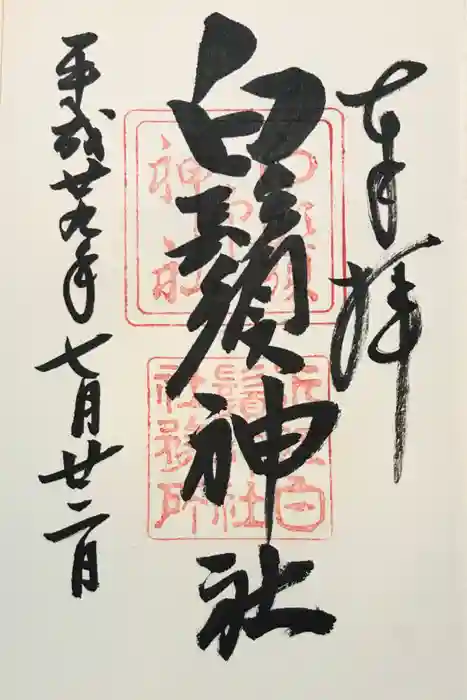 奉拝
白鬚神社
平成廿九年七月廿二日
白鬚
神社
近江白
鬚神社
社務所